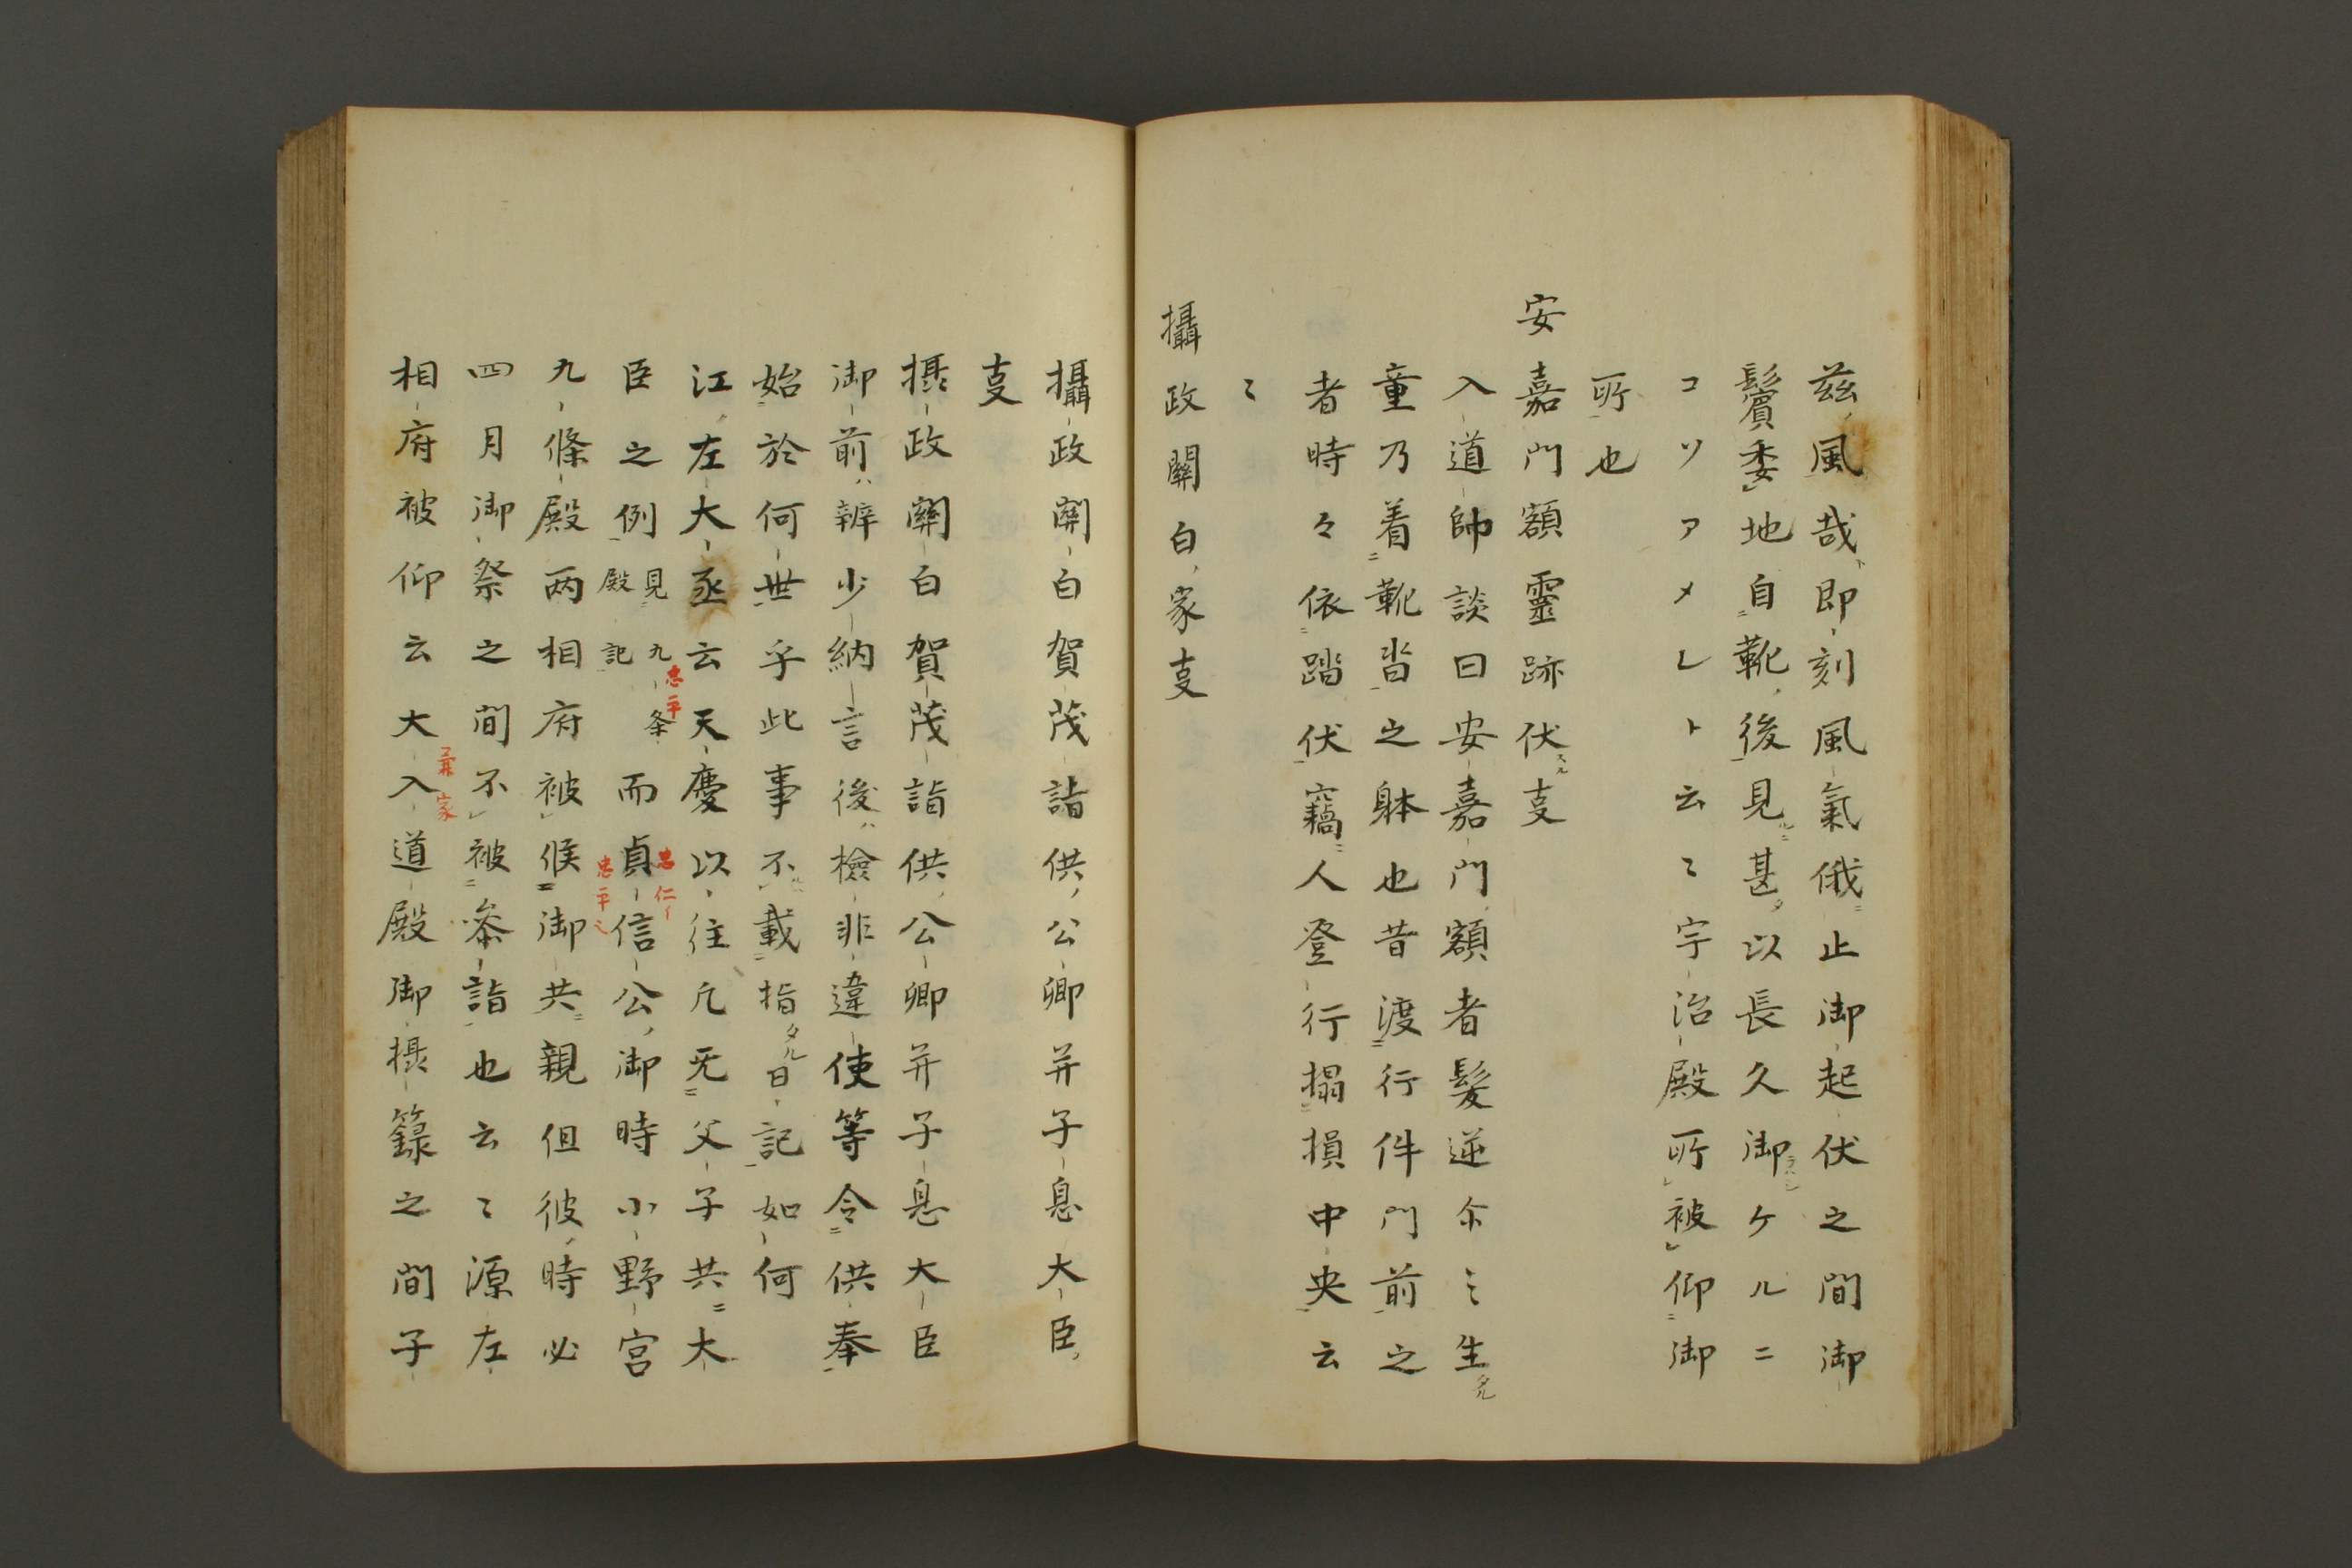 茲風哉即刻風氣俄止御起伏之間御
鬢委地自靴後見甚以長久御ケルニ
コソアメレト云〻宇治殿所被仰御
所也
安嘉門額靈跡伏事
入道帥談曰安嘉門額者髪逆尓〻生タル
童乃着靴沓之躰也昔渡行件門前之
者時々依踏伏竊人登行搨損中央云
〻
攝政關白家事
攝政關白賀茂詣供公卿并子息大臣
事
摂政關白賀茂詣供公卿并子息大臣
御前辨少納言後檢非違使等令供奉
始於何世乎此事不載指タル日記如何
江左大丞云天慶以往凢旡父子共大
臣之例見九条殿記而貞信公御時小野宮
忠平
忠仁
忠平
九條殿两相府被候御共親但彼時必
四月御祭之間不被参詣也云〻源左
兼家
相府被仰云大入道殿御摂籙之間子